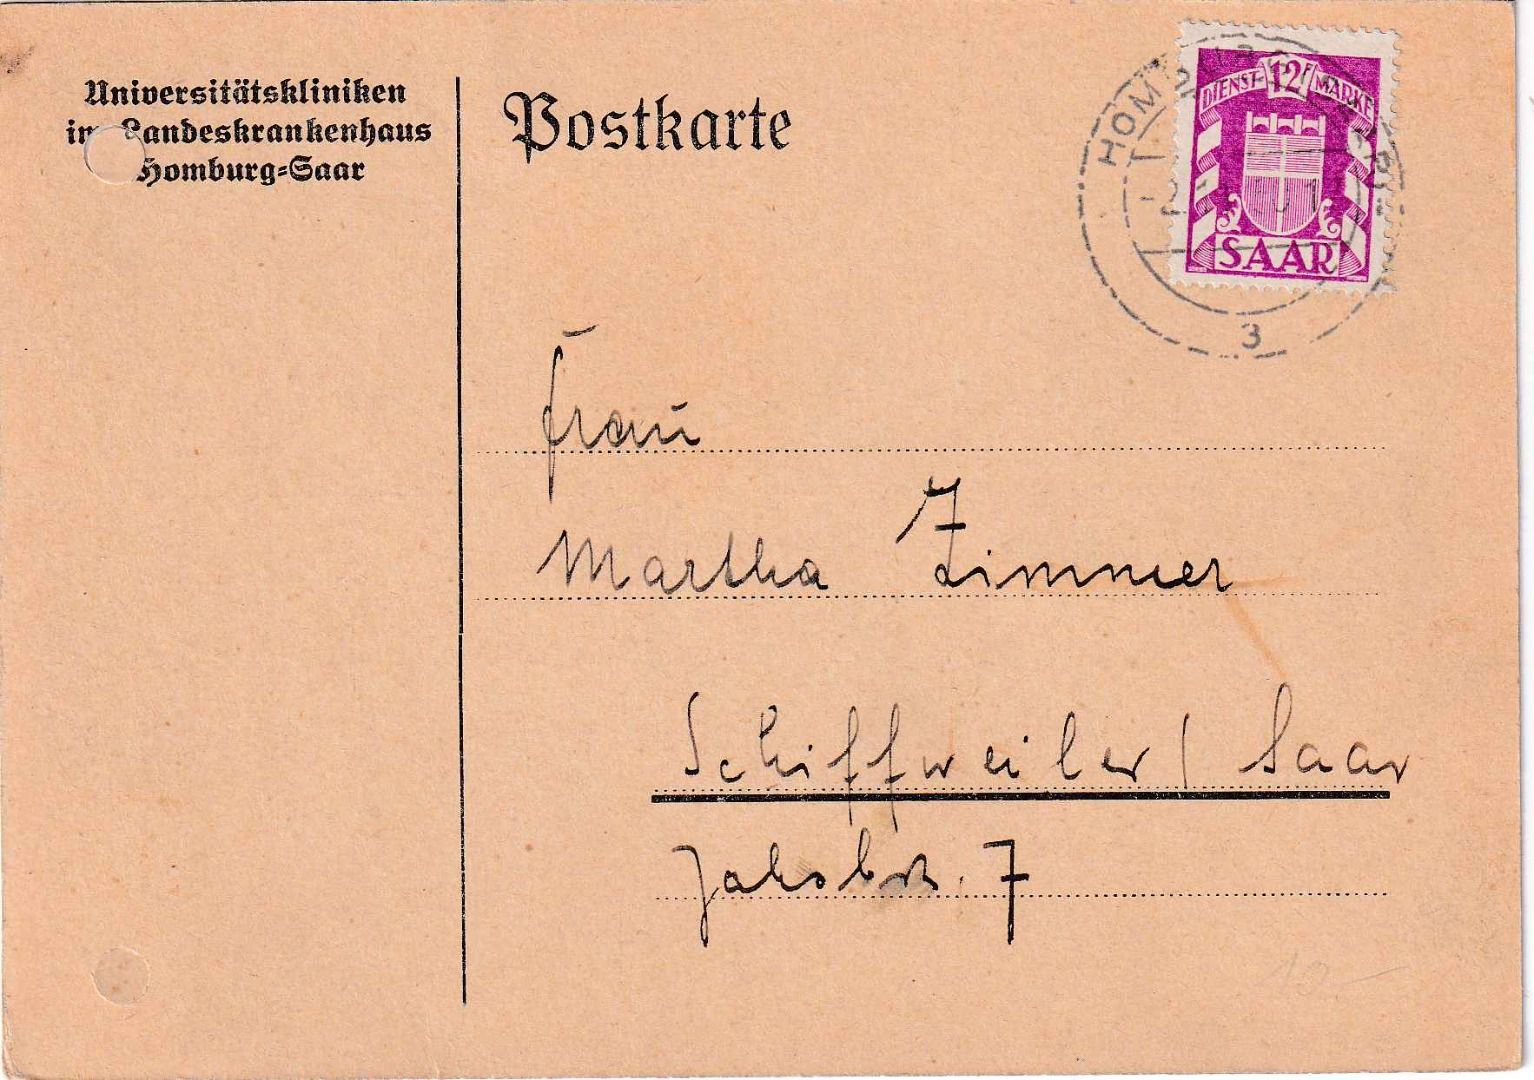 Universitätskliniken
im Landeskrankenhaus
Homburg-Saar
Postkarte
DIENST 12F MARKE
SAAR
HOMBURG (SAAR)
3
Frau
Martha Zimmer
Schiffweiler / Saar
Jakobstr. 7
19-